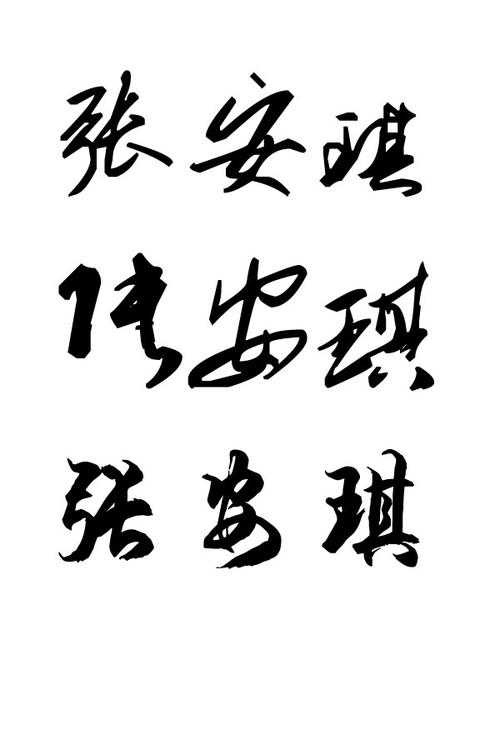 张安琪
张安琪
张安琪